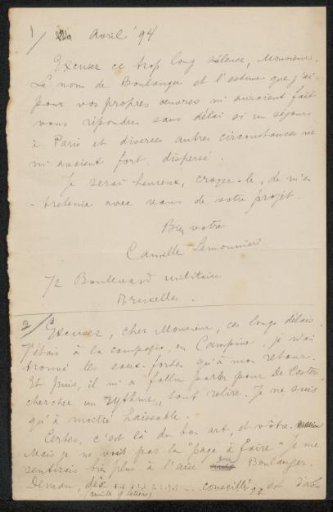 1/ Avril '94
Excusez ce trop long silence, Monsieur.
Le nom de Boulanger et l'estime que j'ai
pour vos propres œuvres m'auraient fait
vous répondre sans délai si un séjour
à Paris et diverses autres circonstances ne
m'avaient fort dispersé.
Je serai heureux, croyez-le, de m'en
tretenir avec vous de votre projet.
Bien votre
Camille Lemonnier
72 Boulevard militaire
Bruxelles.
2/ Excusez, cher Monsieur, ces longs délais.
J'étais à la campagne, en Campine, je n'ai
trouvé les eaux-fortes qu'à mon retour.
Et puis, il m'a fallu partir pour
chercher un tout relire. Je ne suis
qu'à moitié
Certes, c'est là du bon art et vôtre.
Mais je ne vois pas la "page à faire". Je me
sentirais bien plus à l'aise Boulanger.
Demain, dix conseillé est